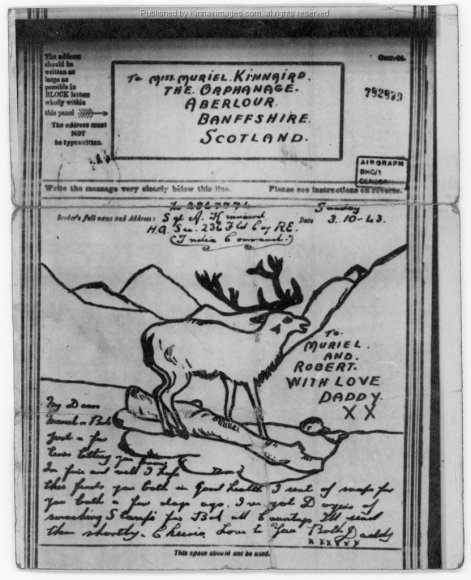 Published by Kinnairimages.com all rights reserved
The address
should be
written as
large as
possible in
BLOCK letters
wholly within
this panel
The address must
NOT
be typewritten.
To Miss. MURIEL. KINNAIRD.
THE. ORPHANAGE.
ABERLOUR.
BANFFSHIRE.
SCOTLAND.
AIRGRAPH
Write the message very clearly below this line.
Please see instructions on reverse.
Sunday
Sender's full name and Address:
Sgt A. Kinnaird
Date 3.10-43.
H.Q. Sec. 236 Fld Coy R.E.
(India Command.)
TO.
MURIEL.
AND.
ROBERT.
WITH LOVE
DADDY.
X X
My Dear
Muriel & Bob
Just a few
lines letting you know
Im fine and well I hope
this finds you both in Good health I sent of snaps for
you both a few days ago. I've got Dozens of
smashing Stamps for Bob all Countrys I'll send
them shortly. Cheerio Love to You Both Daddy
X X X X X X
This space should not be used.